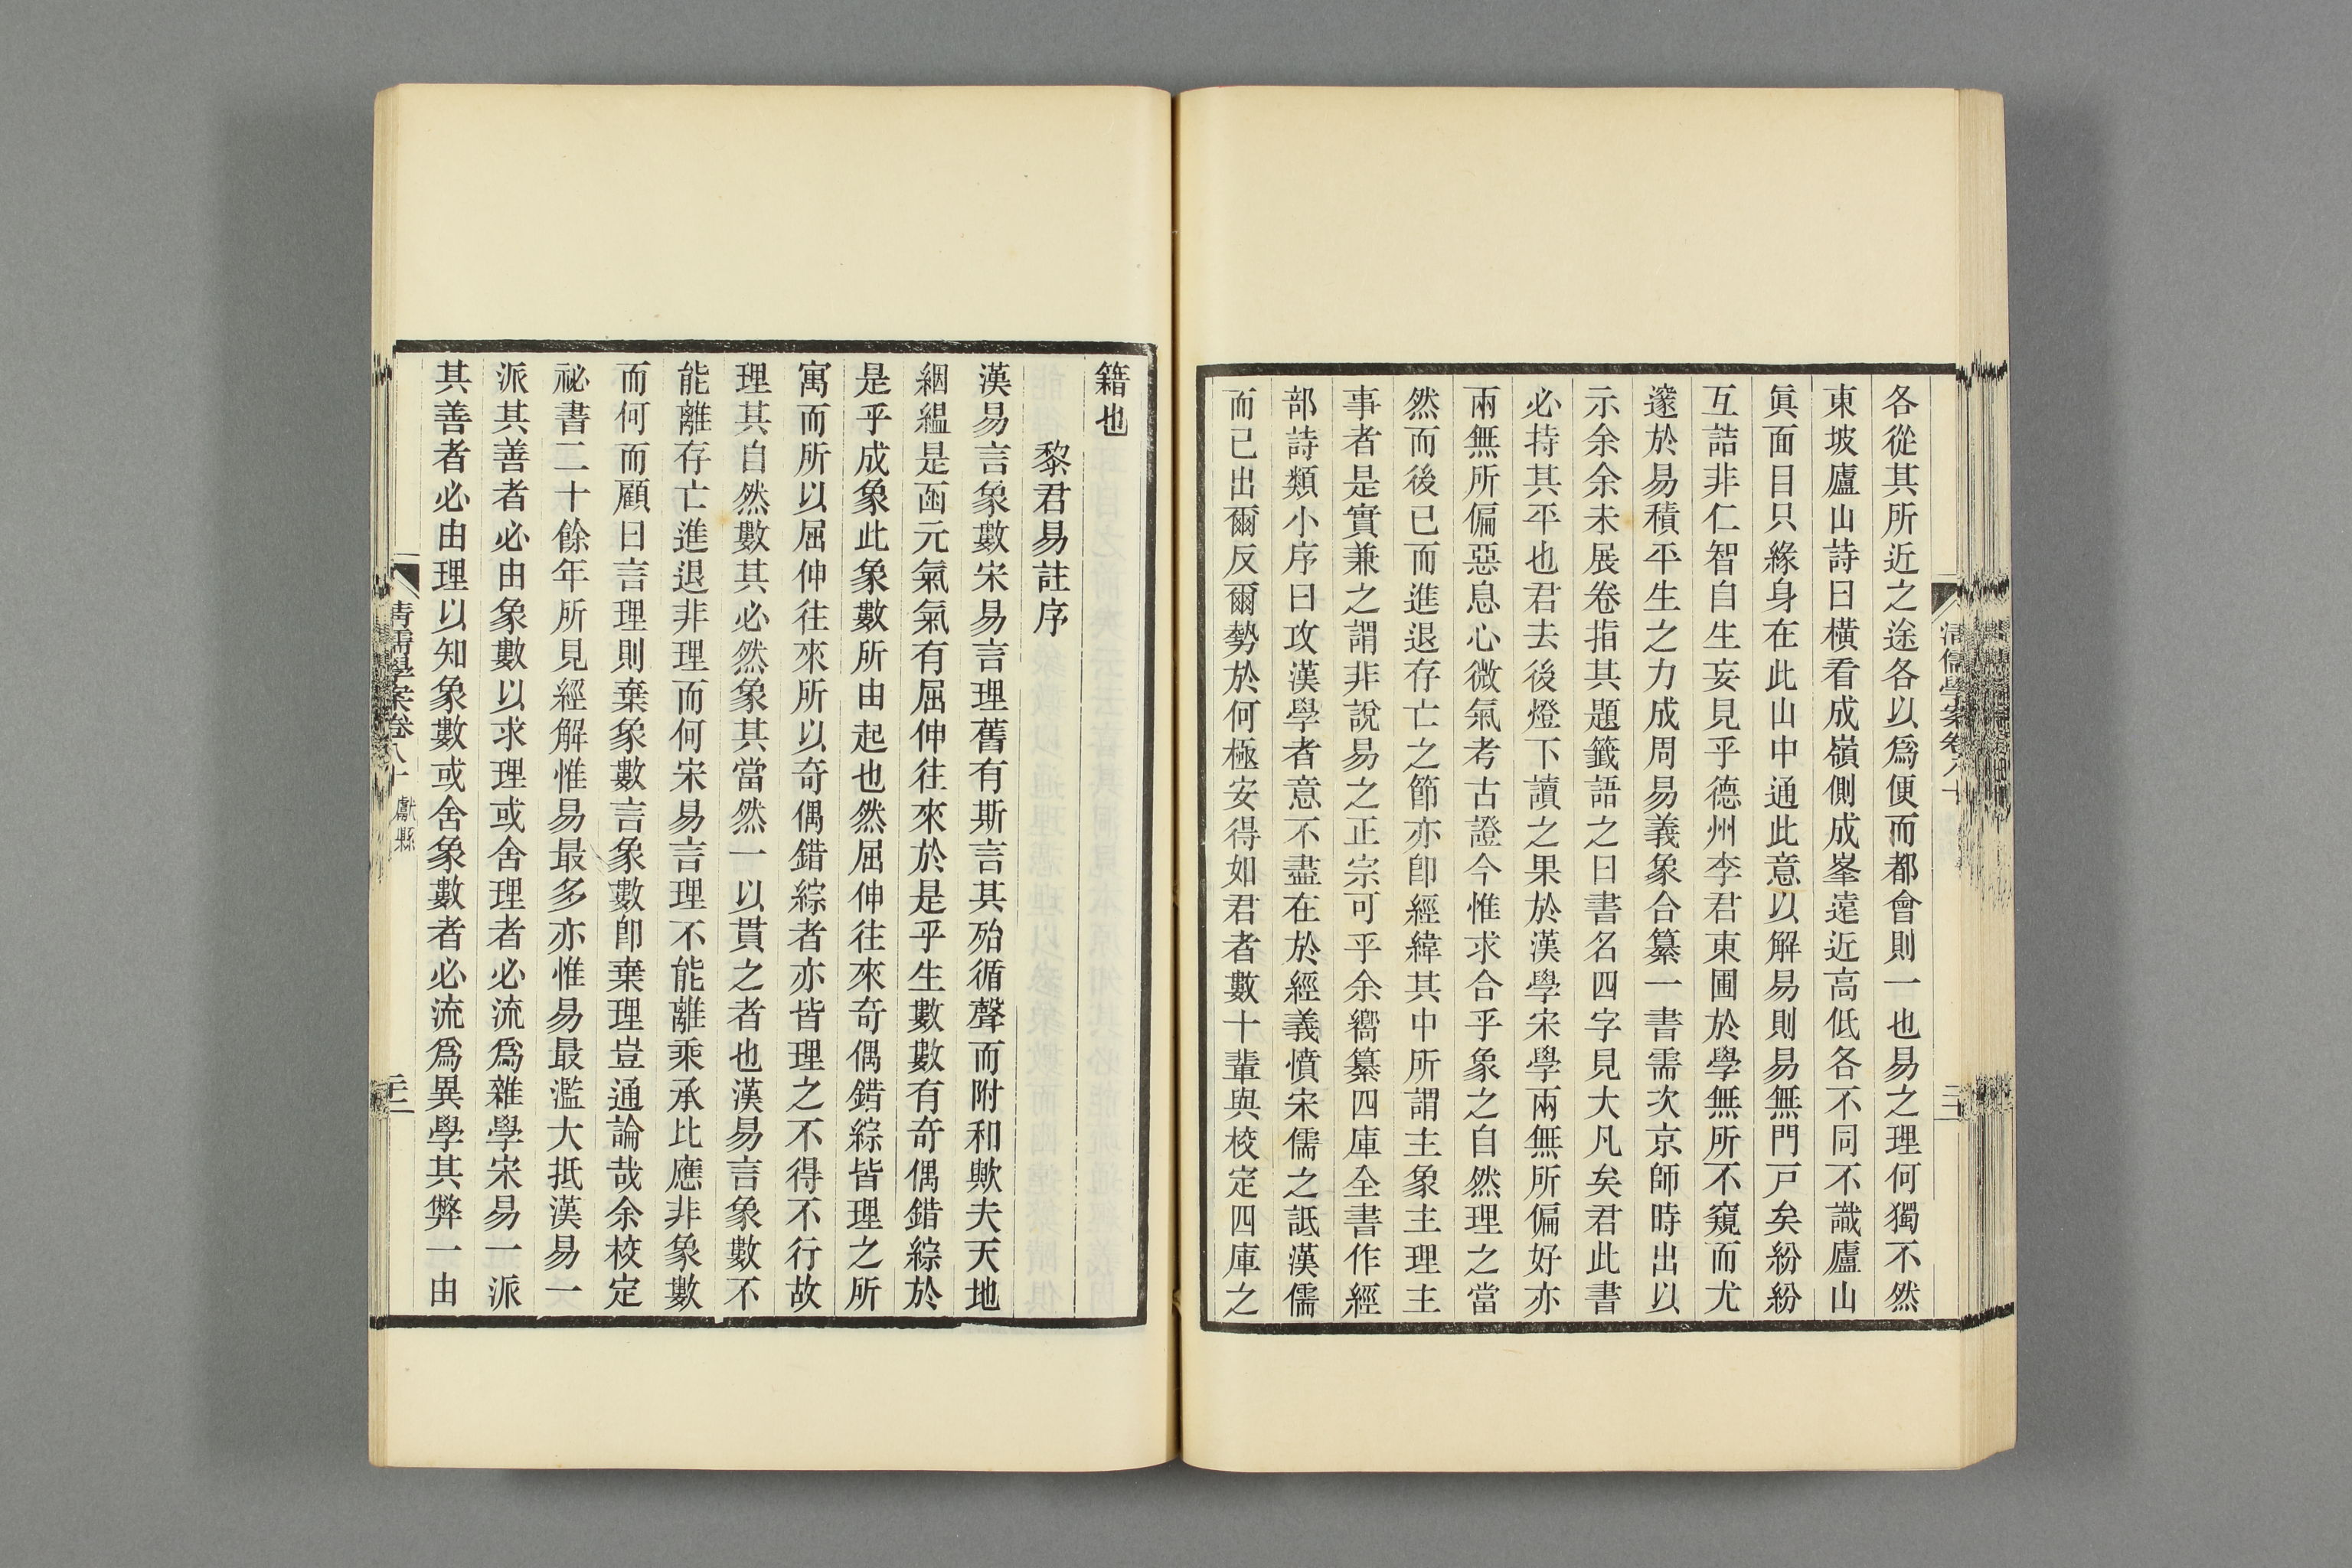 各從其所近之途各以爲便而都會則一也易之理何獨不然
東坡廬山詩曰橫看成嶺側成峯遠近高低各不同不識廬山
眞面目只緣身在此山中通此意以解易則易無門戸矣紛紛
互詰非仁智自生妄見乎德州李君東圃於學無所不窺而尤
邃於易積平生之力成周易義象合纂一書需次京師時出以
示余余未展卷指其題籤語之曰書名四字見大凡矣君此書
必持其平也君去後燈下讀之果於漢學宋學兩無所偏好亦
兩無所偏惡息心微氣考古證今惟求合乎象之自然理之當
然而後已而進退存亡之節亦卽經緯其中所謂主象主理主
事者是實兼之謂非說易之正宗可乎余嚮纂四庫全書作經
部詩類小序曰攻漢學者意不盡在於經義憤宋儒之詆漢儒
而已出爾反爾勢於何極安得如君者數十輩與校定四庫之
清儒學案卷八十
籍也
黎君易註序
漢易言象數宋易言理舊有斯言其殆循聲而附和歟夫天地
絪縕是函元氣氣有屈伸往來於是乎生數數有奇偶錯綜於
是乎成象此象數所由起也然屈伸往來奇偶錯綜皆理之所
寓而所以屈伸往來所以奇偶錯綜者亦皆理之不得不行故
理其自然數其必然象其當然一以貫之者也漢易言象數不
能離存亡進退非理而何宋易言理不能離乘承比應非象數
而何而顧曰言理則棄象數言象數卽棄理豈通論哉余校定
祕書二十餘年所見經解惟易最多亦惟易最濫大抵漢易一
派其善者必由象數以求理或舍理者必流爲雜學宋易一派
其善者必由理以知象數或舍象數者必流爲異學其弊一由
清儒學案卷八十 獻縣